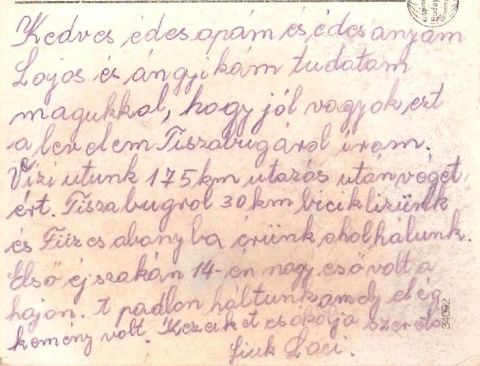 Kedves édes apám és édes anyám
Lajos és ángyikám tudatom
magukkal, hogy jól vagyok, ezt
a levelem Tiszabugáról irom.
Vizi utunk 175 km utazás után véget
ért. Tiszabugról 30 km biciklizünk
és Füzesabanyba érünk, ahol hálunk.
Első éjszakán 14-én nagy eső volt a
hajon. A padlon háltunk amely elég
kemény volt. Kezeiket csokolja szerető
fiuk Laci.
34092